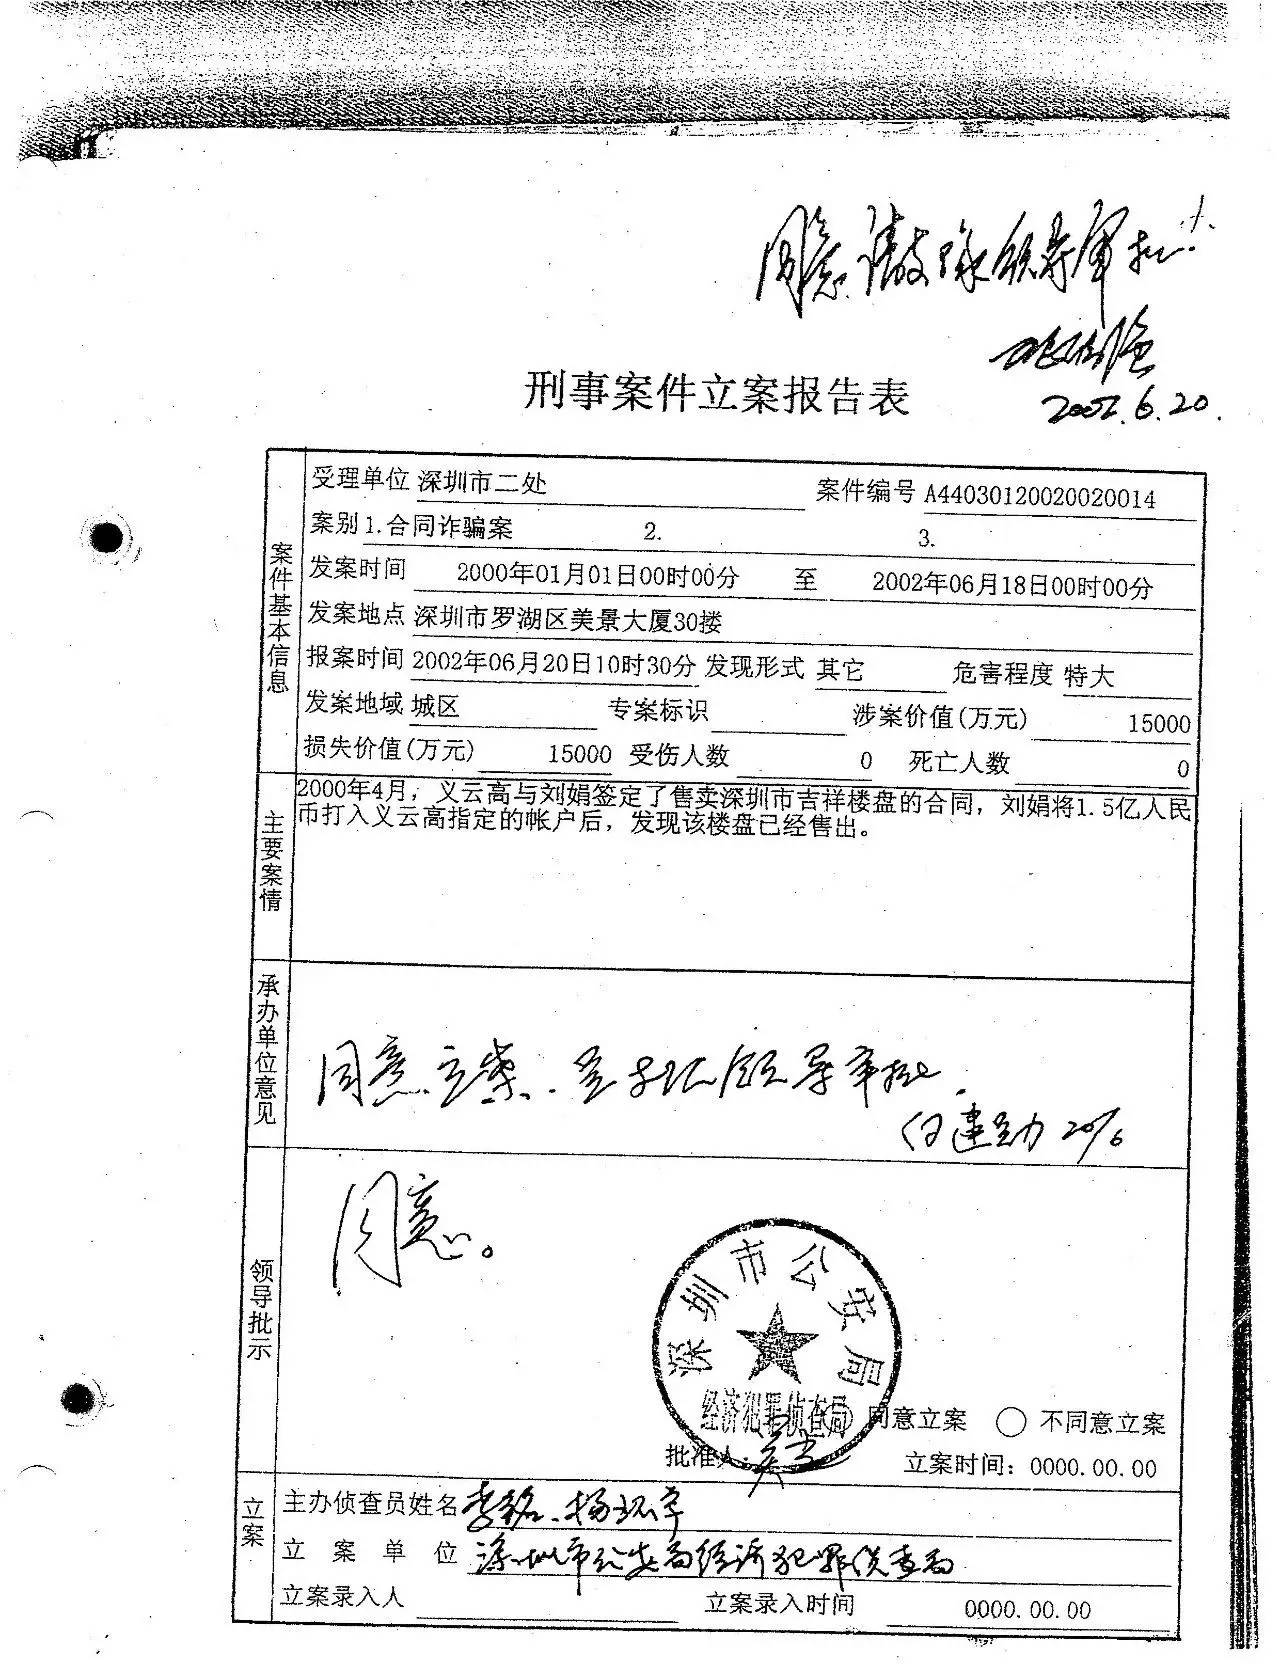 同意 请 领导审批.
2002.6.20.
刑事案件立案报告表
案件基本信息
受理单位 深圳市二处 案件编号 A4403012002002​0014
案别 1.合同诈骗案 2. 3.
发案时间 2000年01月01日00时00分 至 2002年06月18日00时00分
发案地点 深圳市罗湖区美景大厦30搂
报案时间 2002年06月20日10时30分 发现形式 其它 危害程度 特大
发案地域 城区 专案标识 涉案价值(万元) 15000
损失价值(万元) 15000 受伤人数 0 死亡人数 0
主要案情
2000年4月，义云高与刘娟签定了售卖深圳市吉祥楼盘的合同，刘娟将1.5亿人民
币打入义云高指定的帐户后，发现该楼盘已经售出。
承办单位意见
同意立案. 领导审批.
建勋 20/6
领导批示
同意。
深圳市公安局
经济犯罪侦查局
同意立案 ○ 不同意立案
批准人:
立案时间: 0000.00.00
立案
主办侦查员姓名 李铭、杨
立案单位 深圳市公安局经济犯罪侦查局
立案录入人 立案录入时间 0000.00.00